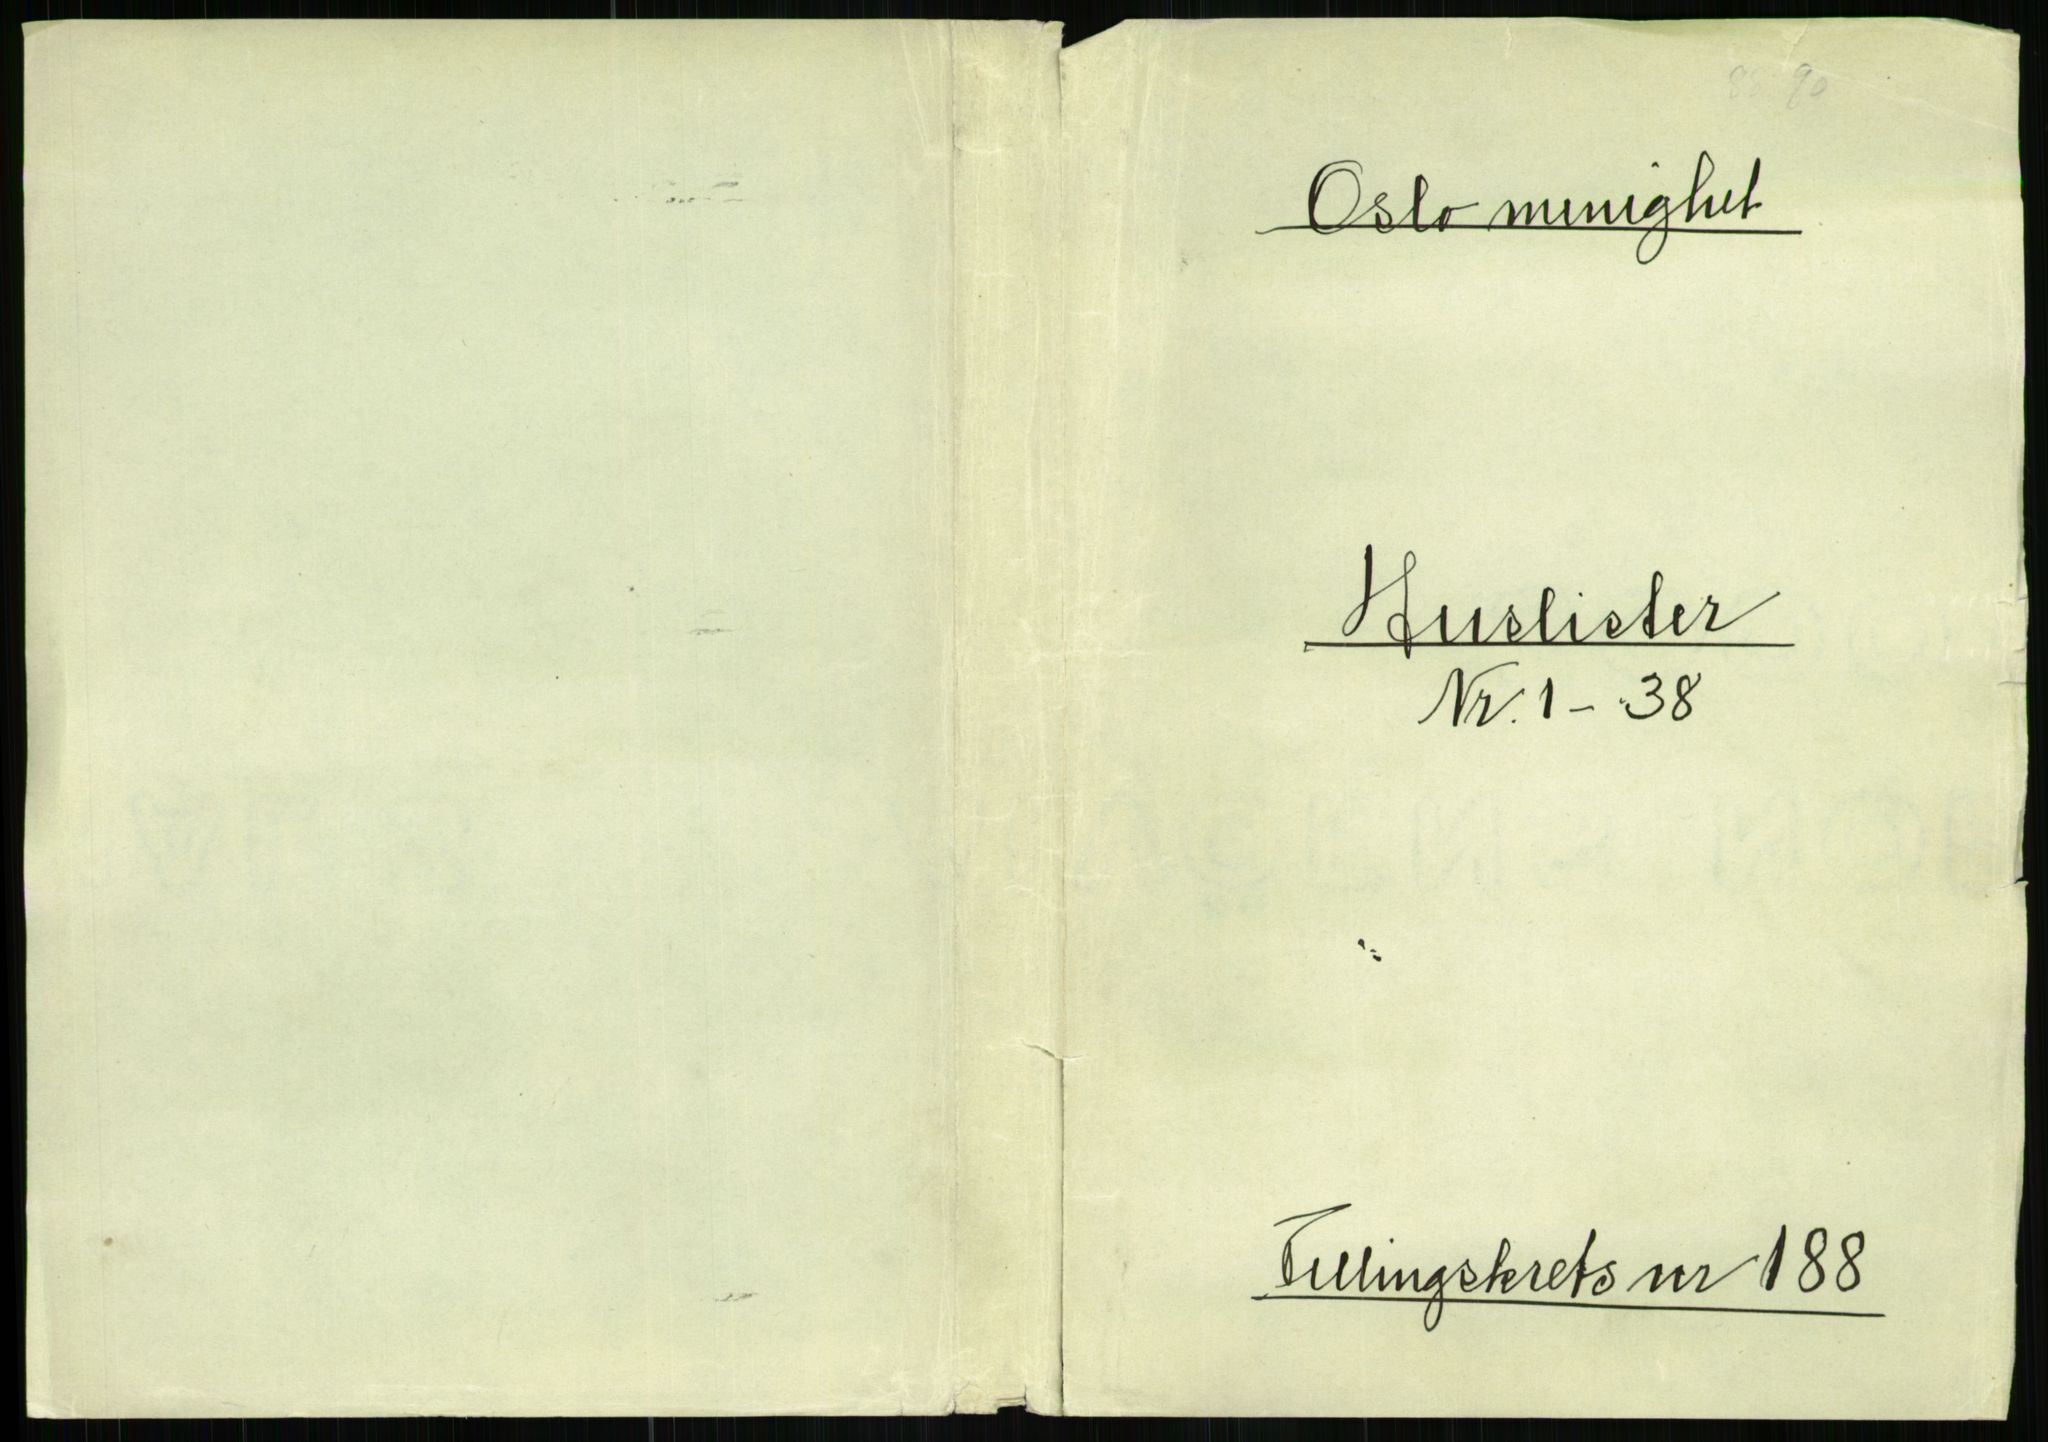 88 90
Oslo menighet
Huslister
Nr. 1 - 38
Tellingskrets nr 188